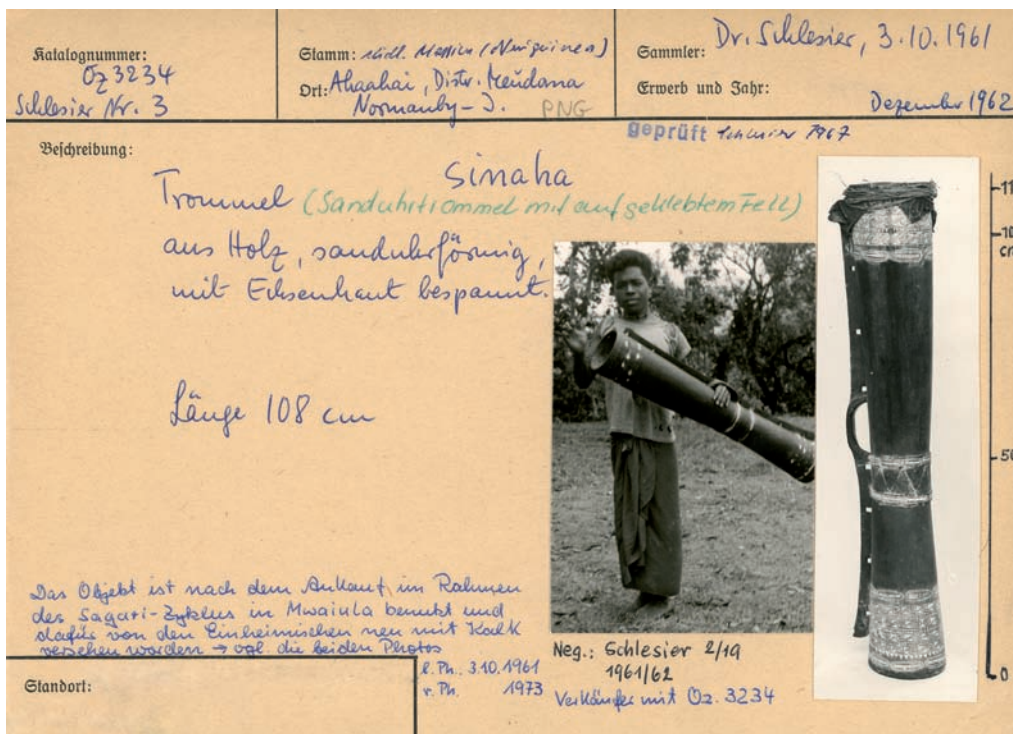 Katalognummer:
Oz 3234
Schlesier Nr. 3
Stamm: südl. Massim (Neuguinea)
Ort: Ahaahai, Distr.
Normanby-I. PNG
Sammler: Dr. Schlesier, 3.10.1961
Erwerb und Jahr:
Dezember 1962
geprüft Schlesier 1967
Beschreibung:
Sinaha
Trommel (Sanduhrtrommel mit aufgeklebtem Fell)
aus Holz, sanduhrförmig,
mit Echsenhaut bespannt.
Länge 108 cm
Das Objekt ist nach dem Ankauf im Rahmen
des Sagari-Zyklus in Mwaiula benutzt und
dafür von den Einheimischen neu mit Kalk
versehen worden → vgl. die beiden Photos
l. Ph. 3.10.1961
r. Ph. 1973
Standort:
Neg.: Schlesier 2/19
1961/62
Verkäufer mit Oz. 3234
cm
50
0